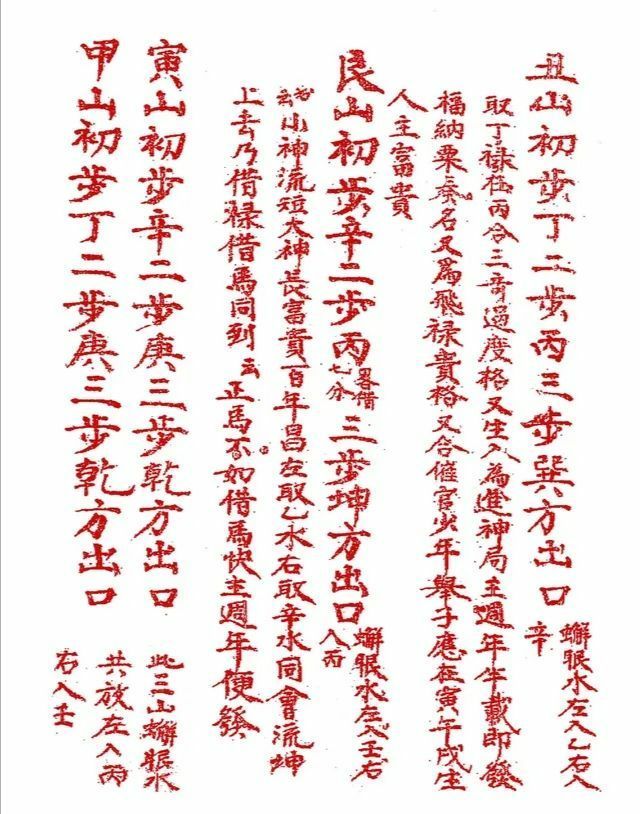 丑山初步丁二步丙三步巽方出口
蠏眼水左入乙右入
辛
取丁祿在丙合三奇過度格又生入為進神局主週年半載即發
福納粟奏名又爲飛祿貴格又合催官少年舉子應在寅午戌生
人主富貴
艮山初步辛二步丙
畧借
七分
三步坤方出口
蠏眼水左入壬右
入丙
云小神流短大神長富貴百年昌左取乙水右取辛水同會流坤
上去乃借祿借馬同到云正馬不如借馬快主週年便發
寅山初步辛二步庚三步乾方出口
甲山初步丁二步庚三步乾方出口
此三山蠏眼水
共放左入丙
右入壬